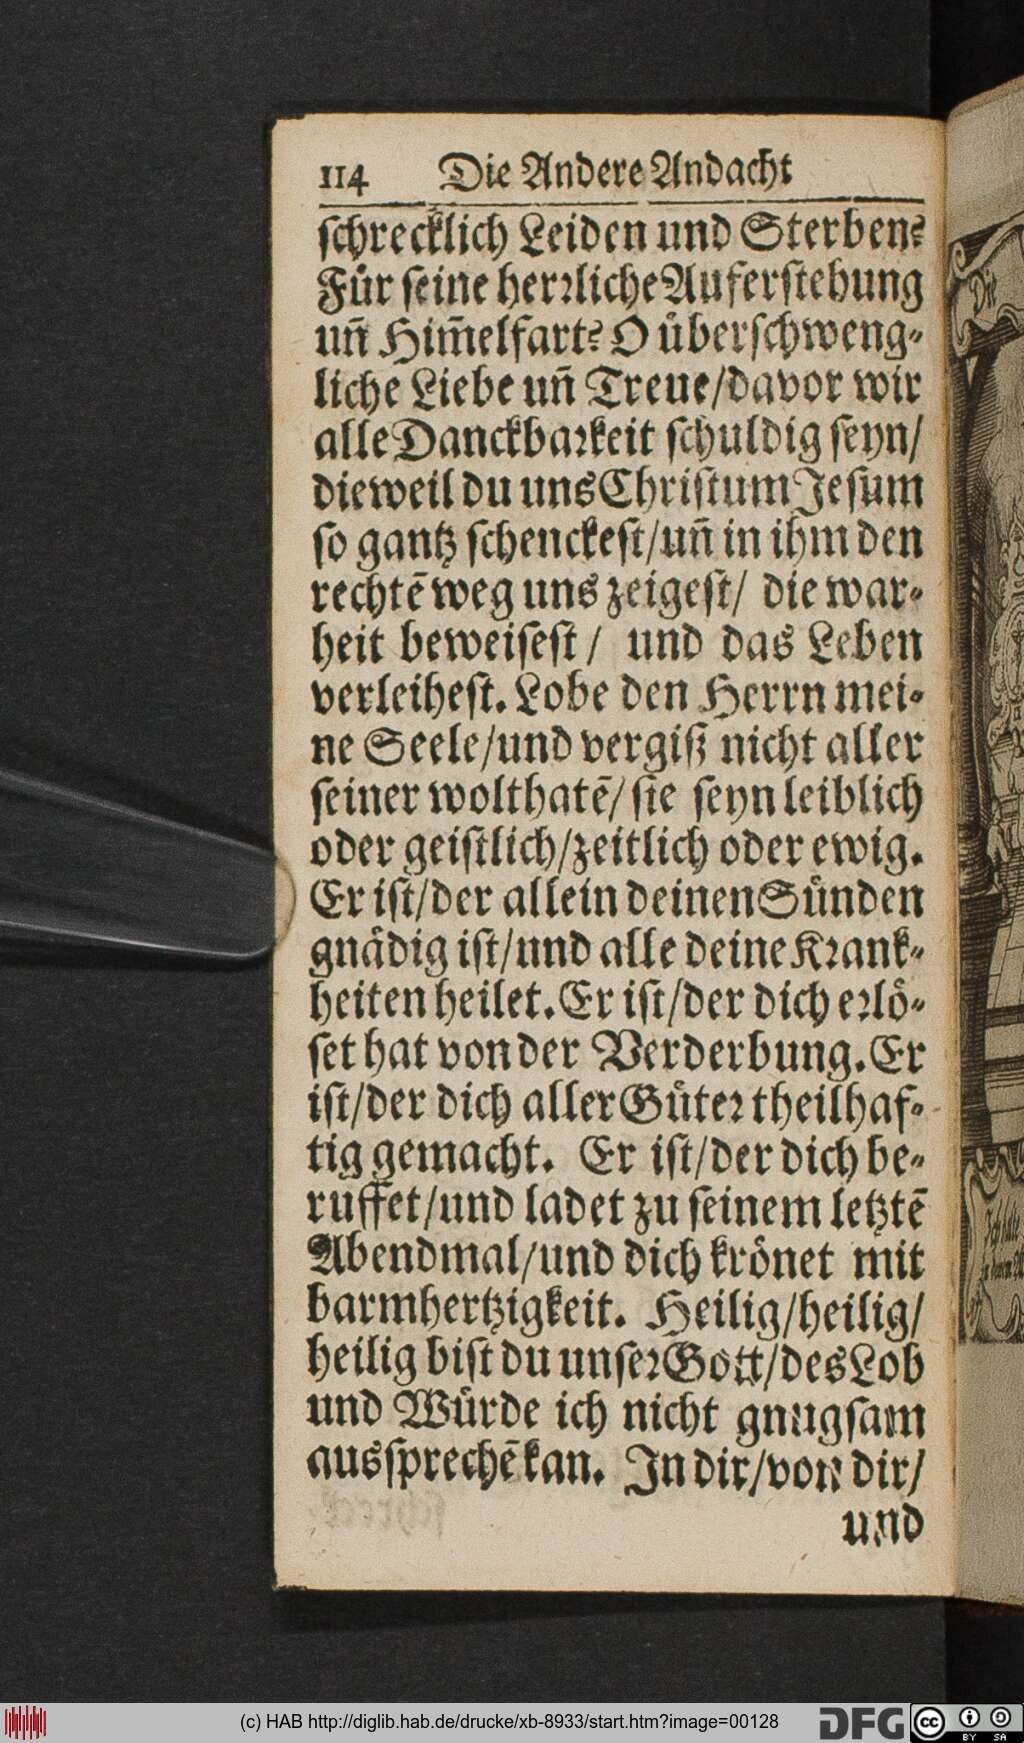 114 Die Andere Andacht
schrecklich Leiden und Sterben?
Für seine herrliche Auferstehung
uñ Him̃elfart? O überschweng-
liche Liebe uñ Treue/davor wir
alle Danckbarkeit schuldig seyn/
dieweil du uns Christum Jesum
so gantz schenckest/uñ in ihm den
rechtē weg uns zeigest/ die war-
heit beweisest/ und das Leben
verleihest. Lobe den Herrn mei-
ne Seele/und vergiß nicht aller
seiner wolthatē/ sie seyn leiblich
oder geistlich/zeitlich oder ewig.
Er ist/der allein deinen Sünden
gnädig ist/und alle deine Krank-
heiten heilet. Er ist/der dich erlö-
set hat von der Verderbung. Er
ist/der dich aller Güter theilhaf-
tig gemacht. Er ist/der dich be-
ruffet/und ladet zu seinem letztē
Abendmal/und dich krönet mit
barmhertzigkeit. Heilig/heilig/
heilig bist du unser Gott/des Lob
und Würde ich nicht gnugsam
aussprechē kan. In dir/von dir/
und
Die
Ich
(c) HAB http://diglib.hab.de/drucke/xb-8933/start.htm?image=00128
DFG
cc BY SA